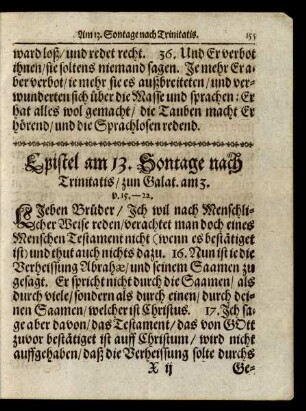 Am 13. Sontage nach Trinitatis. 155
ward loß/ und redet recht. 36. Und Er verbot
ihnen/ sie soltens niemand sagen. Je mehr Er a-
ber verbot/ ie mehr sie es außbreiteten/ und ver-
wunderten sich über die Masse und sprachen: Er
hat alles wol gemacht/ die Tauben macht Er
hörend/ und die Sprachlosen redend.
Epistel am 13. Sontage nach
Trinitatis/ zun Galat. am 3.
v. 15.—22.
LJeben Brüder/ Jch wil nach Menschli-
cher Weise reden/ verachtet man doch eines
Menschen Testament nicht (wenn es bestätiget
ist) und thut auch nichts dazu. 16. Nun ist ie die
Verheissung Abrahæ/ und seinem Saamen zu
gesagt. Er spricht nicht durch die Saamen/ als
durch viele/ sondern als durch einen/ durch dei-
nen Saamen/ welcher ist Christus. 17. Jch sa-
ge aber davon/ das Testament/ das von GOtt
zuvor bestätiget ist auff Christum/ wird nicht
auffgehaben/ daß die Verheissung solte durchs
X ij Ge-